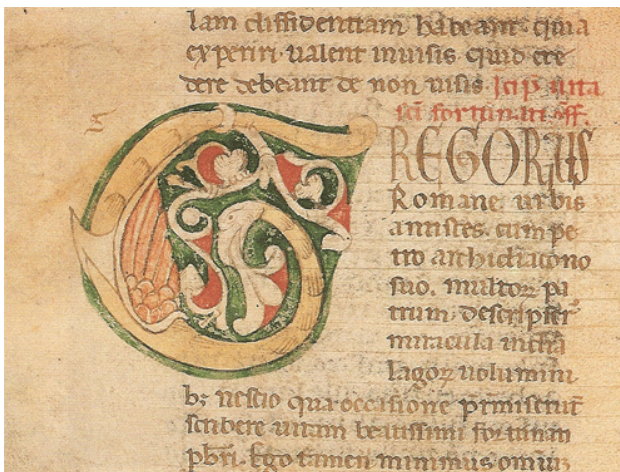 lam diffidentiam habeant. quia
experiri ualent inuisis quid cre
dere debeant de non uisis Icip uita
sci fortunati
G
REGORIUS
Romane urbis
antistes. cum pe
tro archidiacono
suo. multoꝝ pa
trum descripsit
miracula
lagoꝝ uolumini
bꝫ nescio qua occasione p̄misertͭ
scribere uitam beatissimi fortunati
pbri. Ego tamen minimus omniū